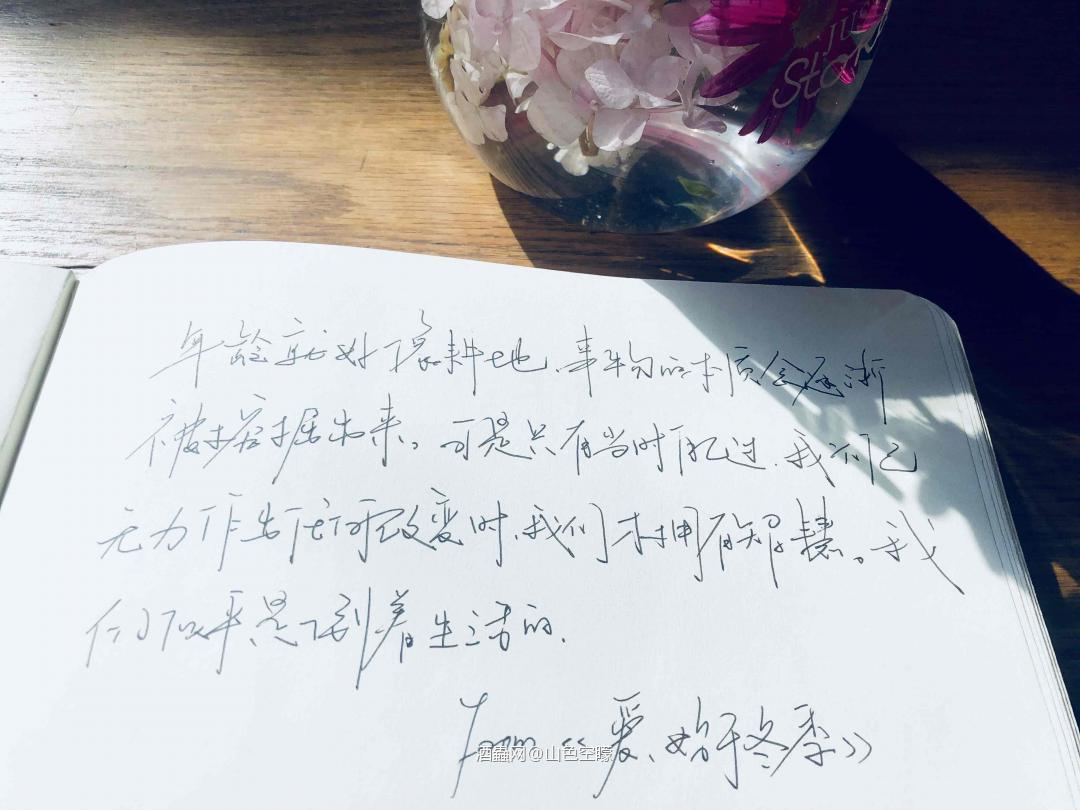 JUS
年龄就好像耕地,事物的本质会逐渐
被挖掘出来。可是只有当时间已过,我们已
无力作出任何改变时,我们才拥有智慧。我
们似乎是倒着生活的.
From《爱、始于冬季》
酒蟲网@山色空曚